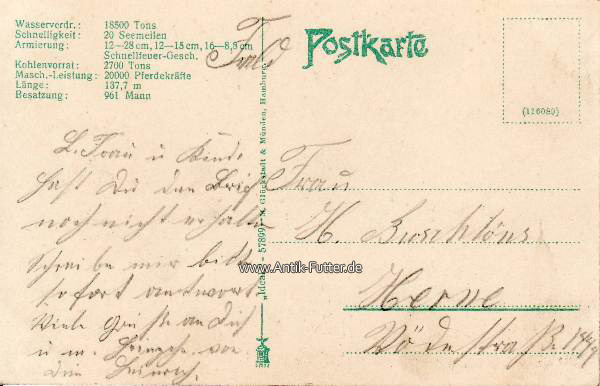 Wasserverdr.: 18500 Tons
Schnelligkeit: 20 Seemeilen
Armierung: 12—28 cm, 12—15 cm, 16—8,8 cm
Schnellfeuer-Gesch.
Kohlenvorrat: 2700 Tons
Masch.-Leistung: 20000 Pferdekräfte
Länge: 137,7 m
Besatzung: 961 Mann
Postkarte
(116089)
L. Frau u Kinde.
hast Du den Brief
noch nicht erhalten
Schreibe mir bitte
sofort antwort
Viele Grüße an Dich
u m. von
dein Heinrich.
"Ideal" 57899 M. Glückstadt & Münden, Hamburg
Frau
H.
Herne
www.Antik-Futter.de